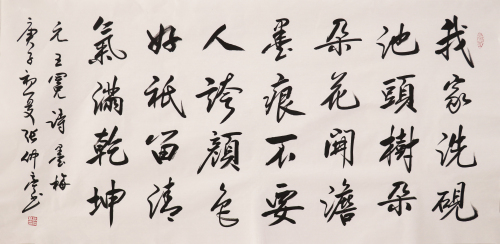 我家洗硯
池頭樹朵
朵花開澹
墨痕不要
人誇顏色
好祇留清
氣滿乾坤
元王冕詩墨梅
庚子初夏張仲亭書